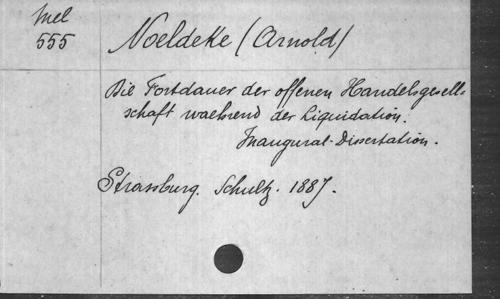 Mel
555
Noeldeke (Arnold)
Die Fortdauer der offenen Handelsgesells
schaft waehrend der Liquidation.
Inaugural-Dissertation.
Strassburg. Schultz. 1887.